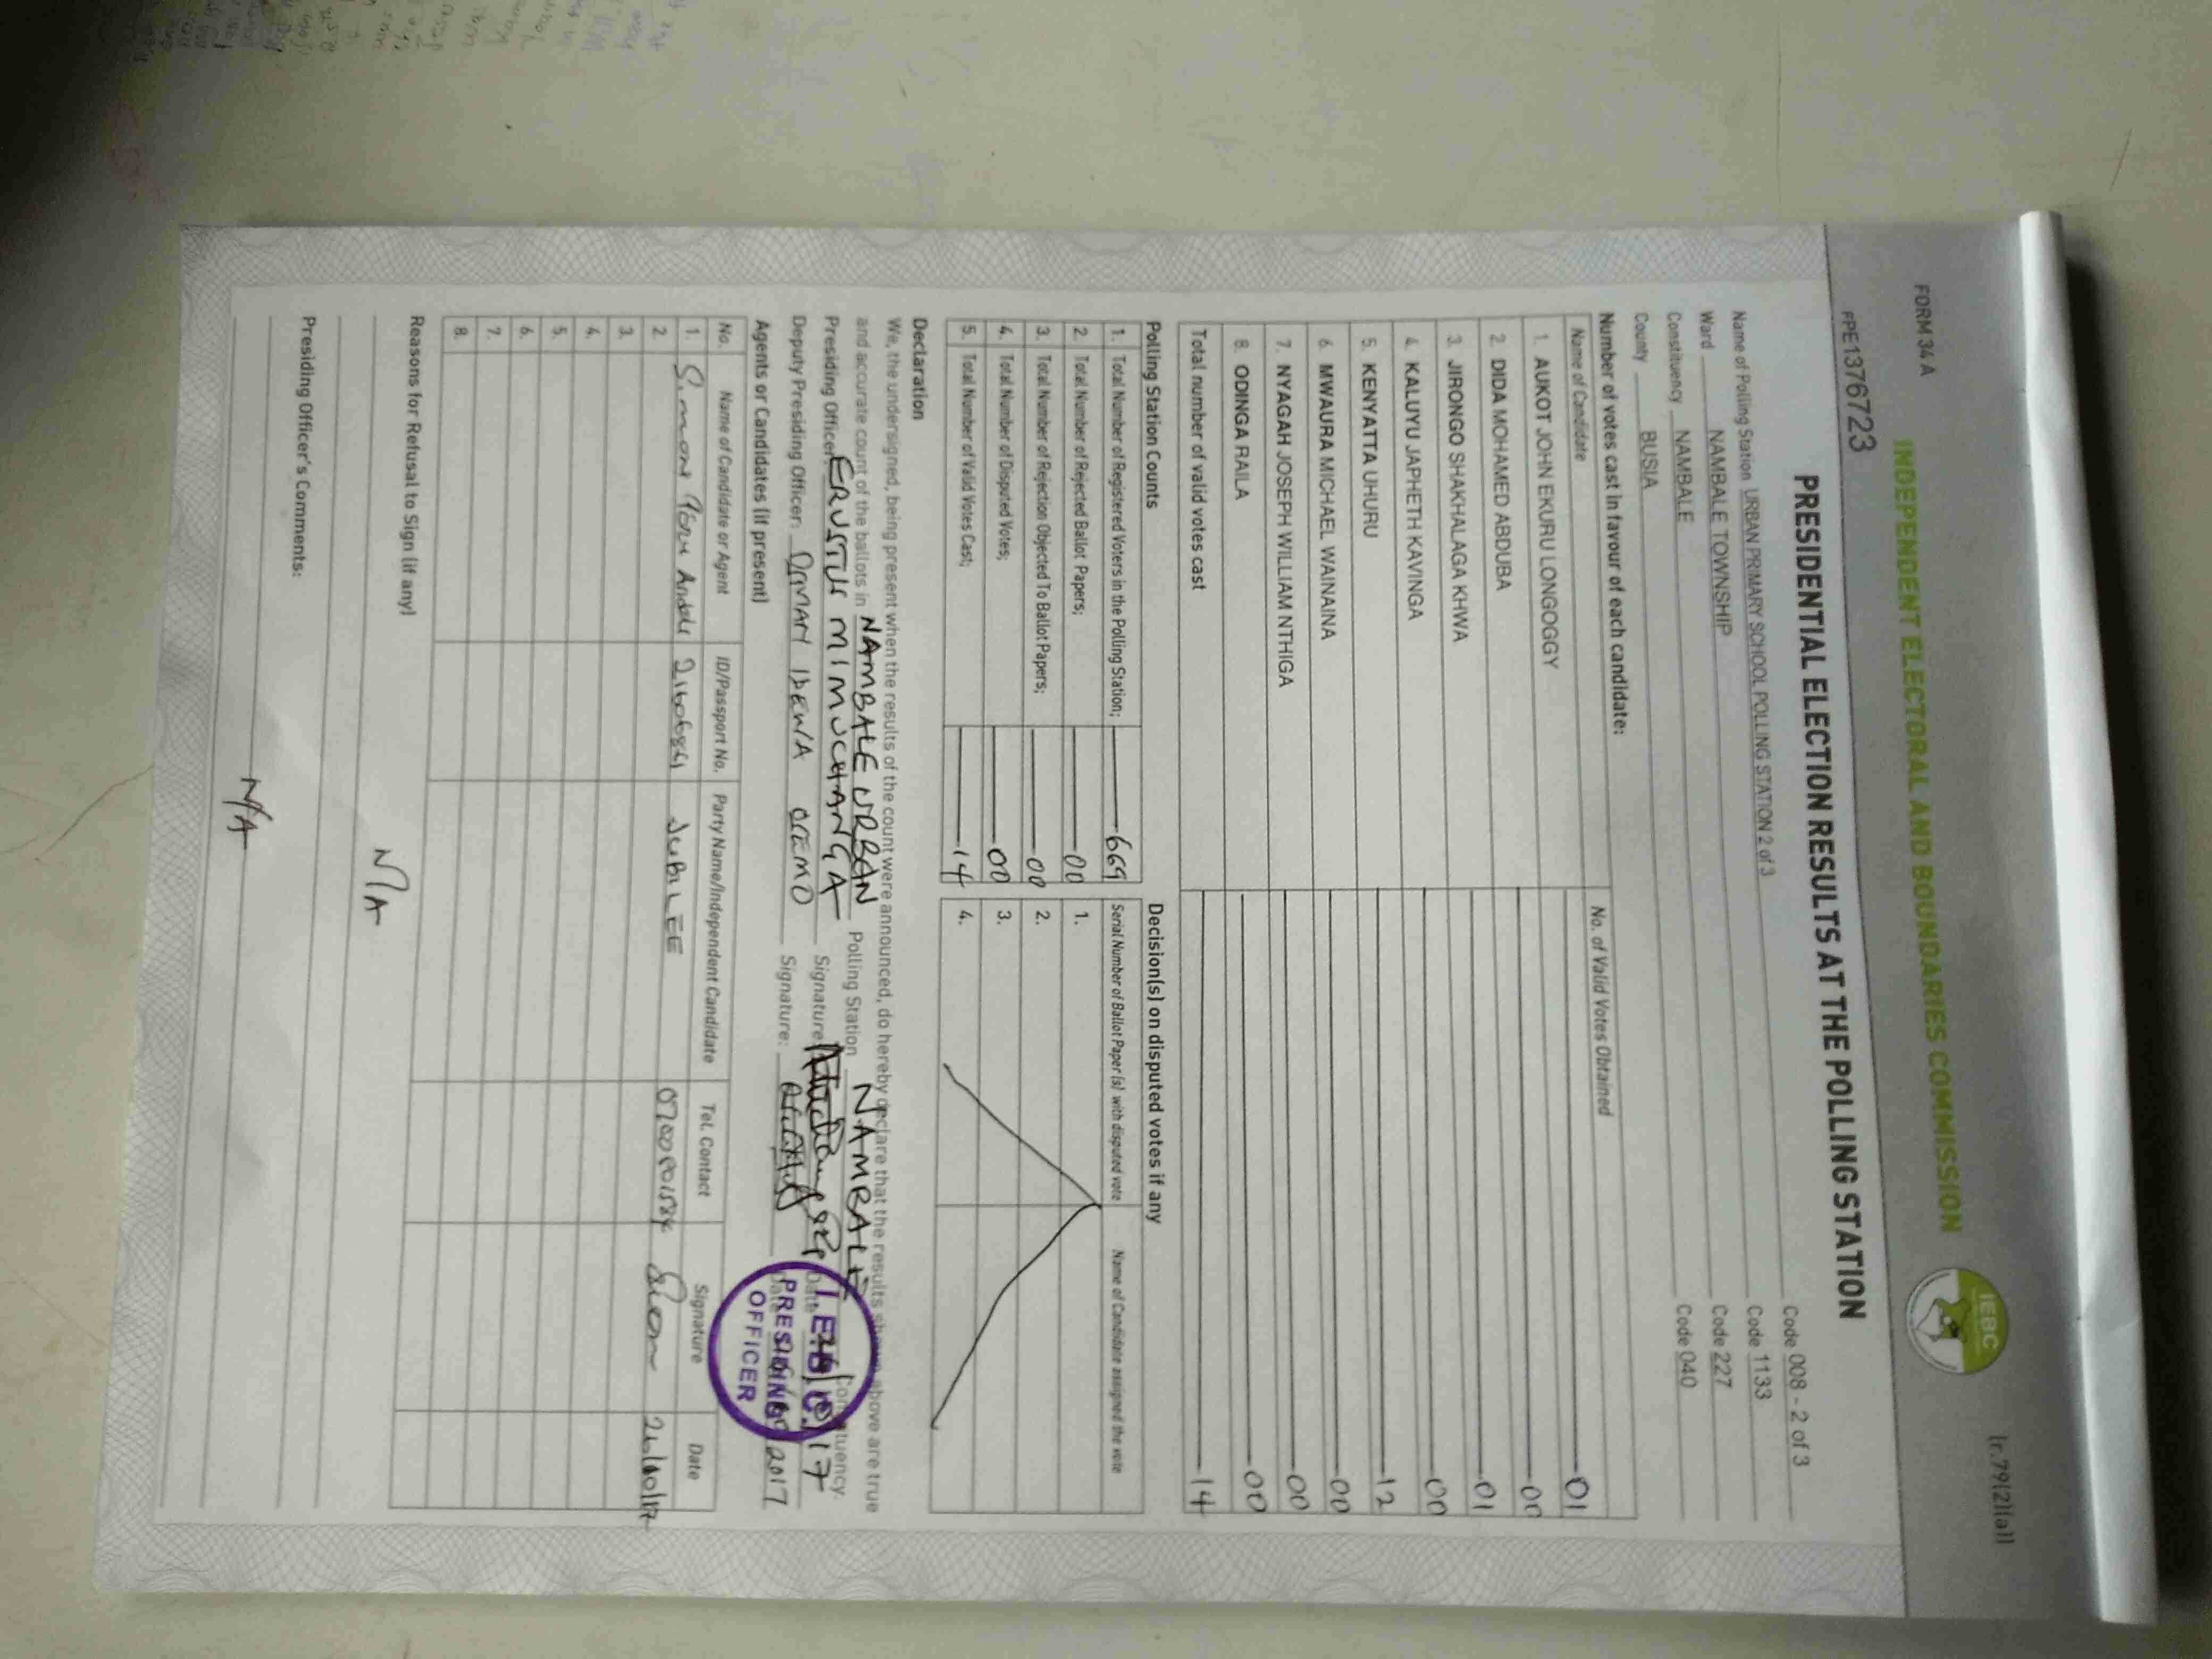 FORM 34 A
(r.79(2)(a))
INDEPENDENT ELECTORAL AND BOUNDARIES COMMISSION
IEBC
PRESIDENTIAL ELECTION RESULTS AT THE POLLING STATION
Name of Polling Station URBAN PRIMARY SCHOOL POLLING STATION 2 of 3 Code 008 - 2 of 3
Ward NAMBALE TOWNSHIP Code 1133
Constituency NAMBALE Code 227
County BUSIA Code 040
Number of votes cast in favour of each candidate:
Name of Candidate No. of Valid Votes Obtained
1. AUKOT JOHN EKURU LONGOGGY 01
2. DIDA MOHAMED ABDUBA 00
3. JIRONGO SHAKHALAGA KHWA 01
4. KALUYU JAPHETH KAVINGA 00
5. KENYATTA UHURU 12
6. MWAURA MICHAEL WAINAINA 00
7. NYAGAH JOSEPH WILLIAM NTHIGA 00
8. ODINGA RAILA 00
Total number of valid votes cast 14
Polling Station Counts
1. Total Number of Registered Voters in the Polling Station; 669
2. Total Number of Rejected Ballot Papers; 00
3. Total Number of Rejection Objected To Ballot Papers; 00
4. Total Number of Disputed Votes; 00
5. Total Number of Valid Votes Cast; 14
Decision(s) on disputed votes if any
Serial Number of Ballot Paper (s) with disputed vote Name of Candidate assigned the vote
1.
2.
3.
4.
Declaration
We, the undersigned, being present when the results of the count were announced, do hereby declare that the results shown above are true
and accurate count of the ballots in NAMBALE URBAN Polling Station NAMBALE Constituency.
Presiding Officer: ERUSTUS MIMUCHANGA Signature: Date 17
Deputy Presiding Officer: Signature: Date 2017
I.E.B.C.
PRESIDING
OFFICER
Agents or Candidates (if present)
No. Name of Candidate or Agent ID/Passport No. Party Name/Independent Candidate Tel. Contact Signature Date
1. JUBILEE 26/10/17
2.
3.
4.
5.
6.
7.
8.
Reasons for Refusal to Sign (if any)
N/A
Presiding Officer's Comments:
N/A